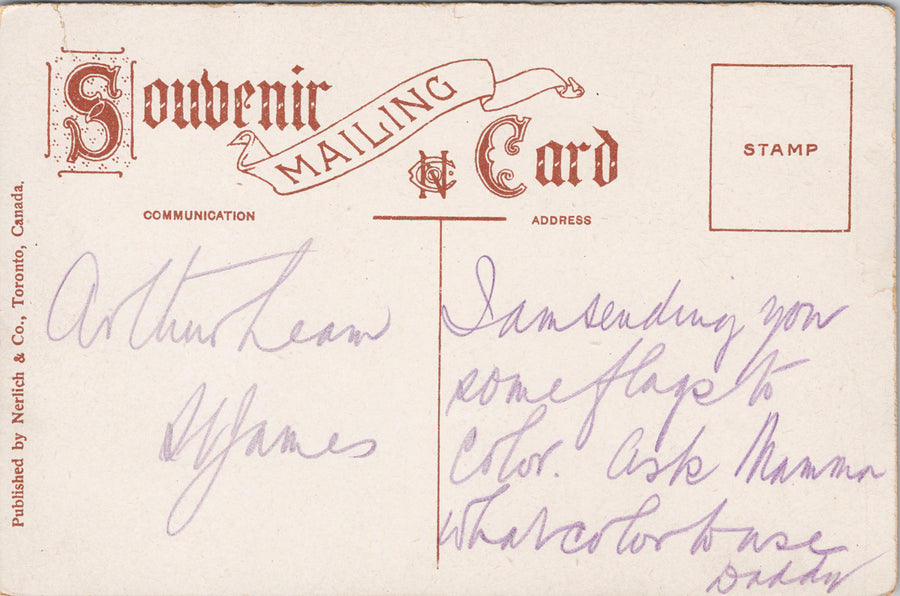 Souvenir
MAILING
Card
STAMP
COMMUNICATION
ADDRESS
Published by Nerlich & Co., Toronto, Canada.
Arthur Leam
St James
I am sending you
some flags to
color. Ask Mamma
what color to use
Daddy